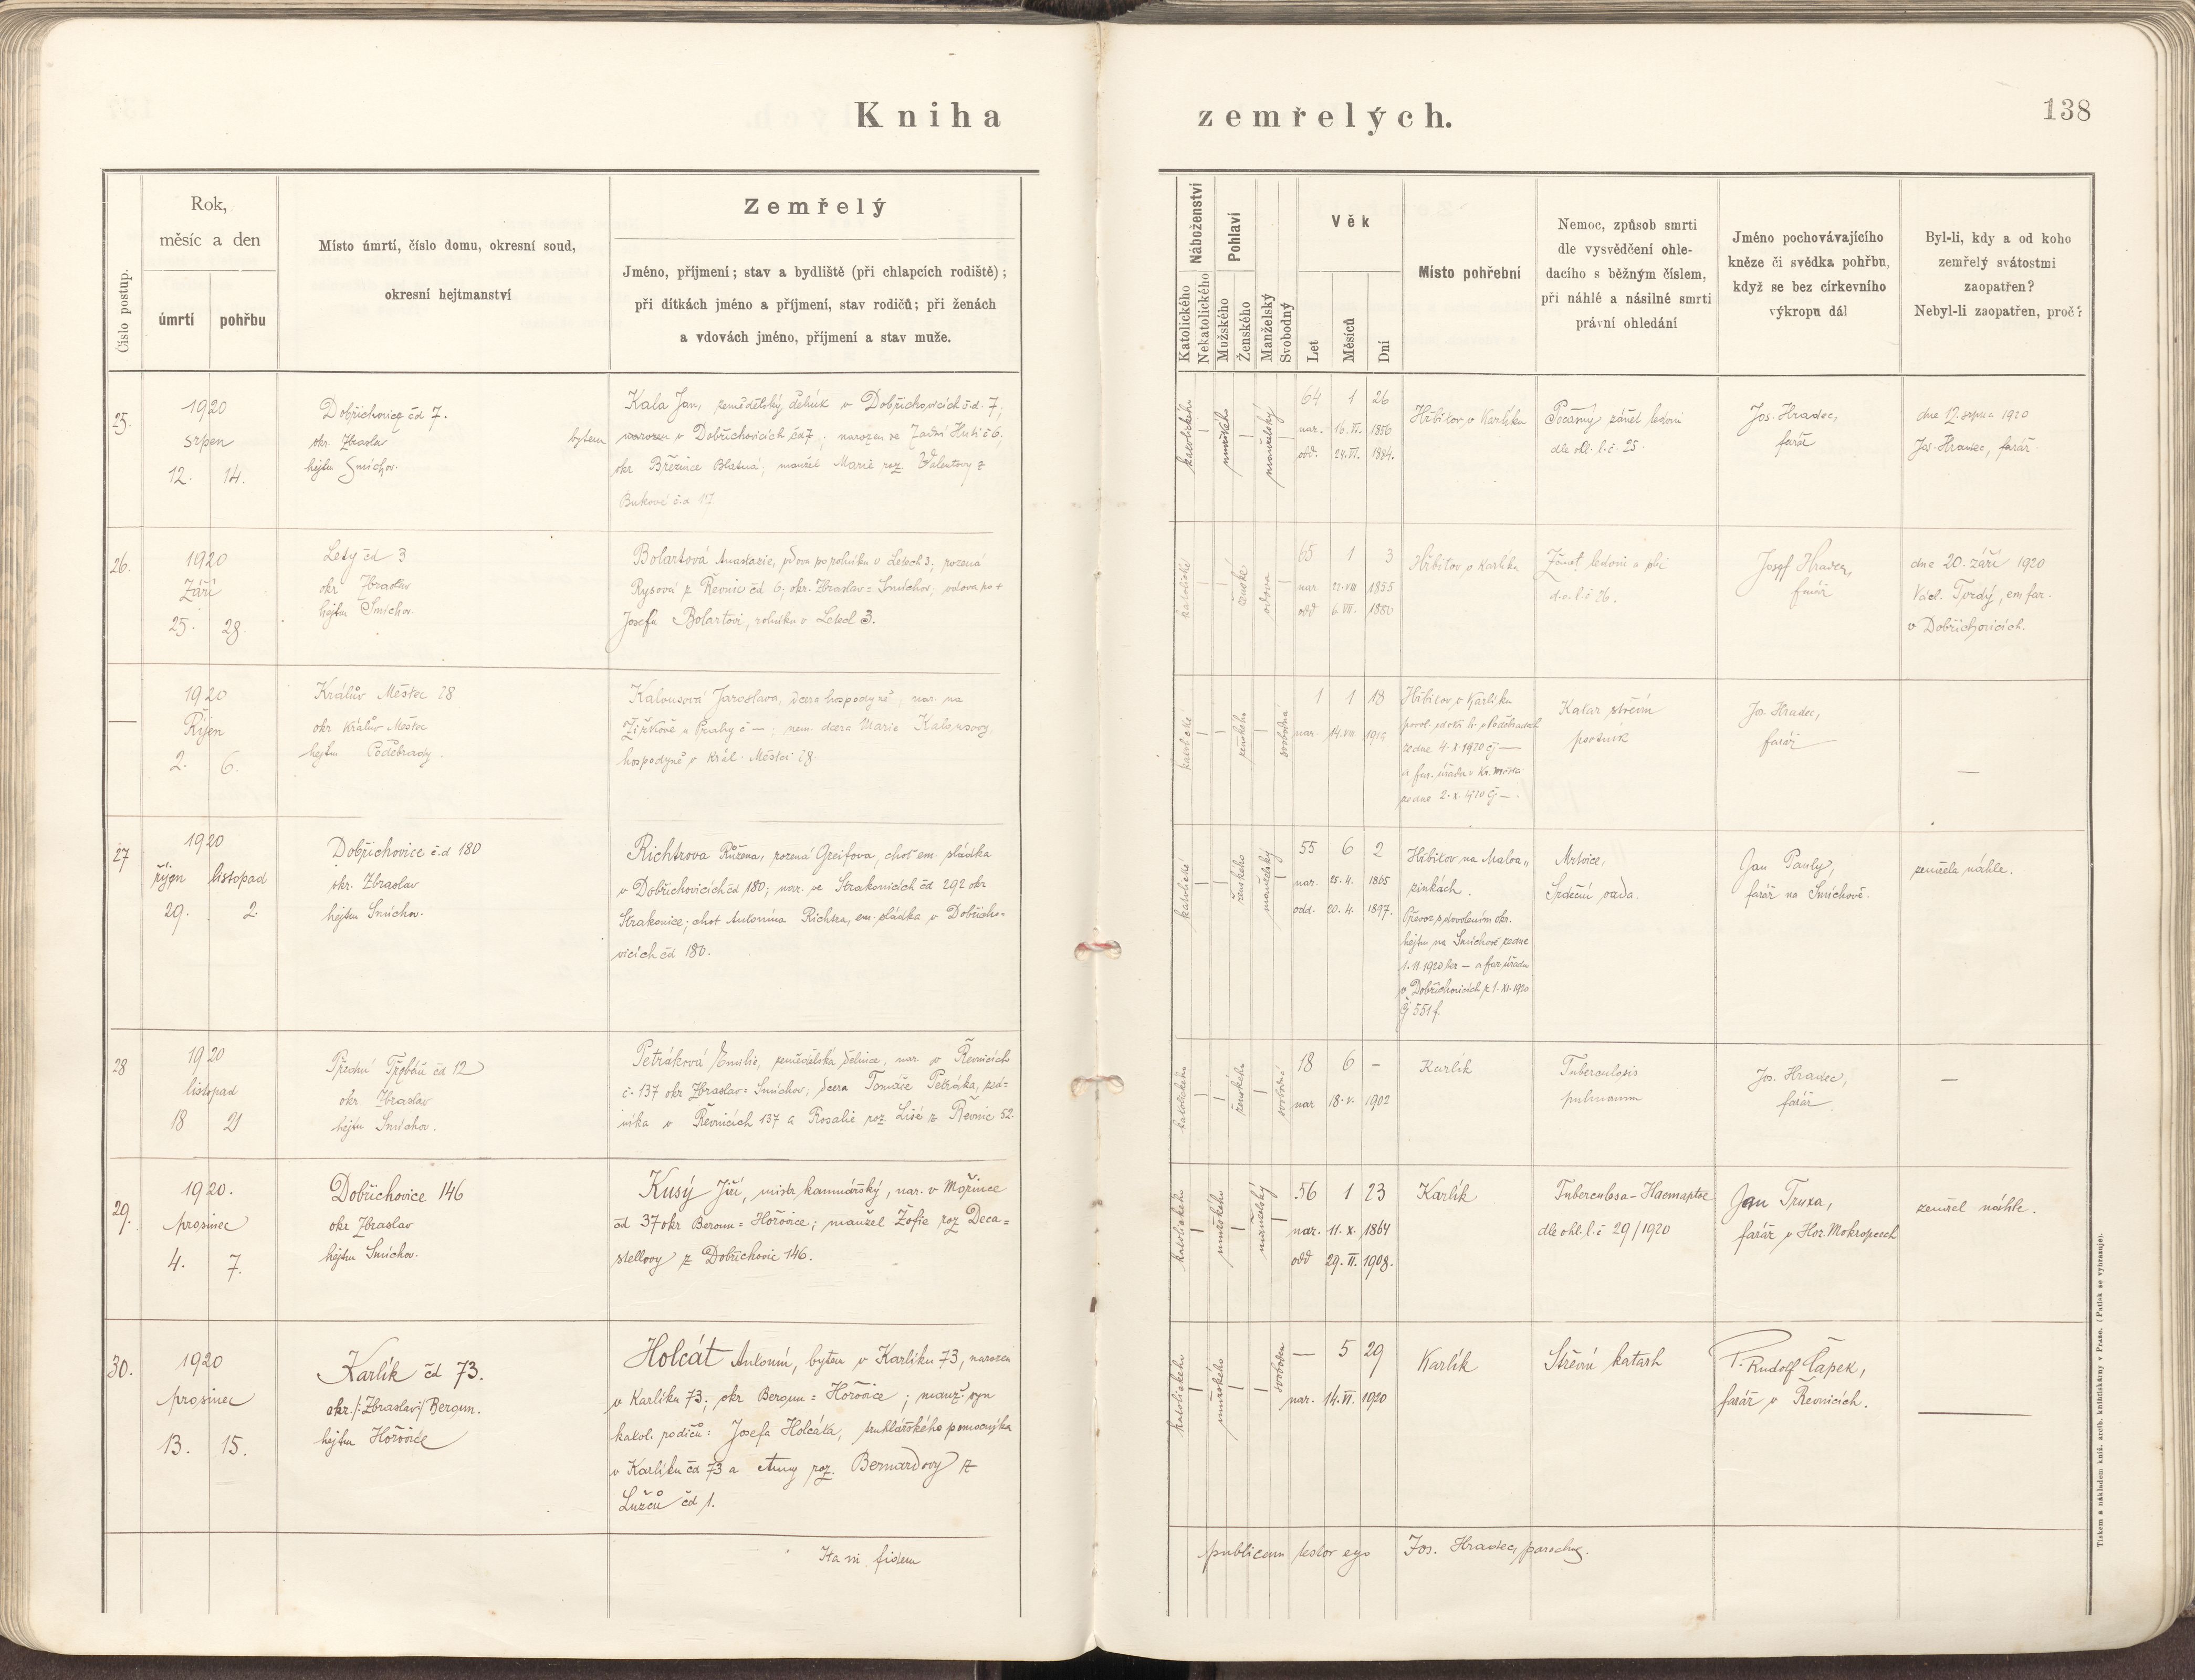 Kniha zemřelých.
138
Číslo postup.
Rok,
měsíc a den
úmrtí
pohřbu
Místo úmrtí, číslo domu, okresní soud,
okresní hejtmanství
Zemřelý
Jméno, příjmení; stav a bydliště (při chlapcích rodiště);
při dítkách jméno a příjmení, stav rodičů; při ženách
a vdovách jméno, příjmení a stav muže.
Náboženství
Katolického
Nekatolického
Pohlaví
Mužského
Ženského
Manželský
Svobodný
Věk
Let
Měsíců
Dní
Místo pohřební
Nemoc, způsob smrti
dle vysvědčení ohle-
dacího s běžným číslem,
při náhlé a násilné smrti
právní ohledání
Jméno pochovávajícího
kněze či svědka pohřbu,
když se bez církevního
výkropu dál
Byl-li, kdy a od koho
zemřelý svátostmi
zaopatřen?
Nebyl-li zaopatřen, proč?
25.
1920
srpen
12. 14.
Dobřichovice čd 7.
okr. Zbraslav
hejtm Smíchov.
Kala Jan, zemědělský dělník v Dobřichovicích č.d. 7;
bytem v Dobřichovicích čd 7; narozen ve Zadní Huti č 6,
okr Březnice Blatná; manžel Marie roz. Valentovy z
Bukové č.d 17
katolického
mužského
manželský
64 1 26
nar. 16. VI. 1856
odd. 24. VI. 1884.
Hřbitov v Karlíku
zánět ledvin
dle ohl. l. č. 25.
Jos. Hradec,
farář
dne 12. srpna 1920
Jos. Hradec, farář.
26.
1920
Září
25. 28.
Lety čd 3
okr Zbraslav
hejtm Smíchov.
Bolartová Anastazie, vdova po rolníku v Letech 3; rozená
Rysová z Řevnic čd 6; okr. Zbraslav = Smíchov, vdova po +
Josefu Bolartovi, rolníku v Letech 3.
katolické
ženské
vdova
65 1 3
nar 22. VIII 1855
odd 6. VII. 1880
Hřbitov v Karlíku
Zánět ledvin a plic
d. o. l. č 26.
Josef Hradec,
farář
dne 20. září 1920
Václ. Tvrdý, em far.
v Dobřichovicích.
—
1920
Říjen
2. 6.
Králův Městec 28
okr Králův Městec
hejtm Poděbrady.
Kalousová Jaroslava, dcera hospodyně, nar. na
Žižkově u Prahy č —; nem. dcera Marie Kalousovy,
hospodyně v Král. Městci 28.
katolické
ženského
svobodná
1 1 18
nar. 14. VIII 1919
Hřbitov v Karlíku
povol. od okr. h. v Poděbradech
ze dne 4. X 1920 čj —
a far. úřadu v Kr. Městci
ze dne 2. X. 1920 čj —.
Katar střevní
Jos. Hradec,
farář
—
27
1920
říjen listopad
29. 2.
Dobřichovice č.d 180
okr. Zbraslav
hejtm Smíchov.
Richtrova Růžena, rozená Greifova, choť em. sládka
v Dobřichovicích čd 180; nar. ve Strakonicích čd 292 okr
Strakonice; choť Antonína Richtra, em. sládka v Dobřicho=
vicích čd 180.
katolické
ženského
manželský
55 6 2
nar. 25. 4. 1865
odd. 20. 4. 1897.
Hřbitov na Malva„
zinkách.
Převoz s dovolením okr.
hejtm na Smíchově ze dne
1. 11 1920 bez — a far. úřadu
v Dobřichovicích z 1. XI. 1920
čj 551 f.
Mrtvice,
Srdeční vada.
Jan Pauly,
farář na Smíchově.
zemřela náhle.
28
1920
listopad
18 21
Přední Třebáň čd 12
okr. Zbraslav
hejtm Smíchov.
Petráková Emilie, zemědělská dělnice, nar. v Řevnicích
č. 137 okr Zbraslav = Smíchov; dcera Tomáše Petráka, zed=
níka v Řevnicích 137 a Rosalie roz. Lisé z Řevnic 52.
katolického
ženského
svobodná
18 6 –
nar 18. V. 1902
Karlík
Tuberculosis
pulmonum
Jos. Hradec,
farář.
—
29.
1920.
prosinec
4. 7.
Dobřichovice 146
okr Zbraslav
hejtm Smíchov.
Kusý Jiří, mistr kamnářský, nar. v Mořince
čd 37 okr Beroun = Hořovice; manžel Žofie roz Deca=
stellovy z Dobřichovic 146.
katolického
mužského
manželský
56 1 23
nar. 11. X. 1864
odd 29. II. 1908.
Karlík
Tuberculosa – Haemaptoe
dle ohl. l. č 29/1920
Jan Truxa,
farář v Hor. Mokropsech
zemřel náhle.
30.
1920
prosinec
13. 15.
Karlík čd 73.
okr. /: Zbraslav :/ Beroun.
hejtm Hořovice
Holcát Antonín, bytem v Karlíku 73, narozen
v Karlíku 73; okr Beroun = Hořovice; manž. syn
katol. rodičů: Josefa Holcáta, truhlářského pomocníka
v Karlíku čd 73 a Anny roz. Bernardovy z
Lužců čd 1.
katolického
mužského
svoboden
— 5 29
nar. 14. VI. 1920
Karlík
Střevní katarh
P. Rudolf Čapek,
farář v Řevnicích.
—
Ita in fidem publicam testor ego Jos. Hradec, parochus.
Tiskem a nákladem kníž. arcib. knihtiskárny v Praze. (Patisk se vyhrazuje).